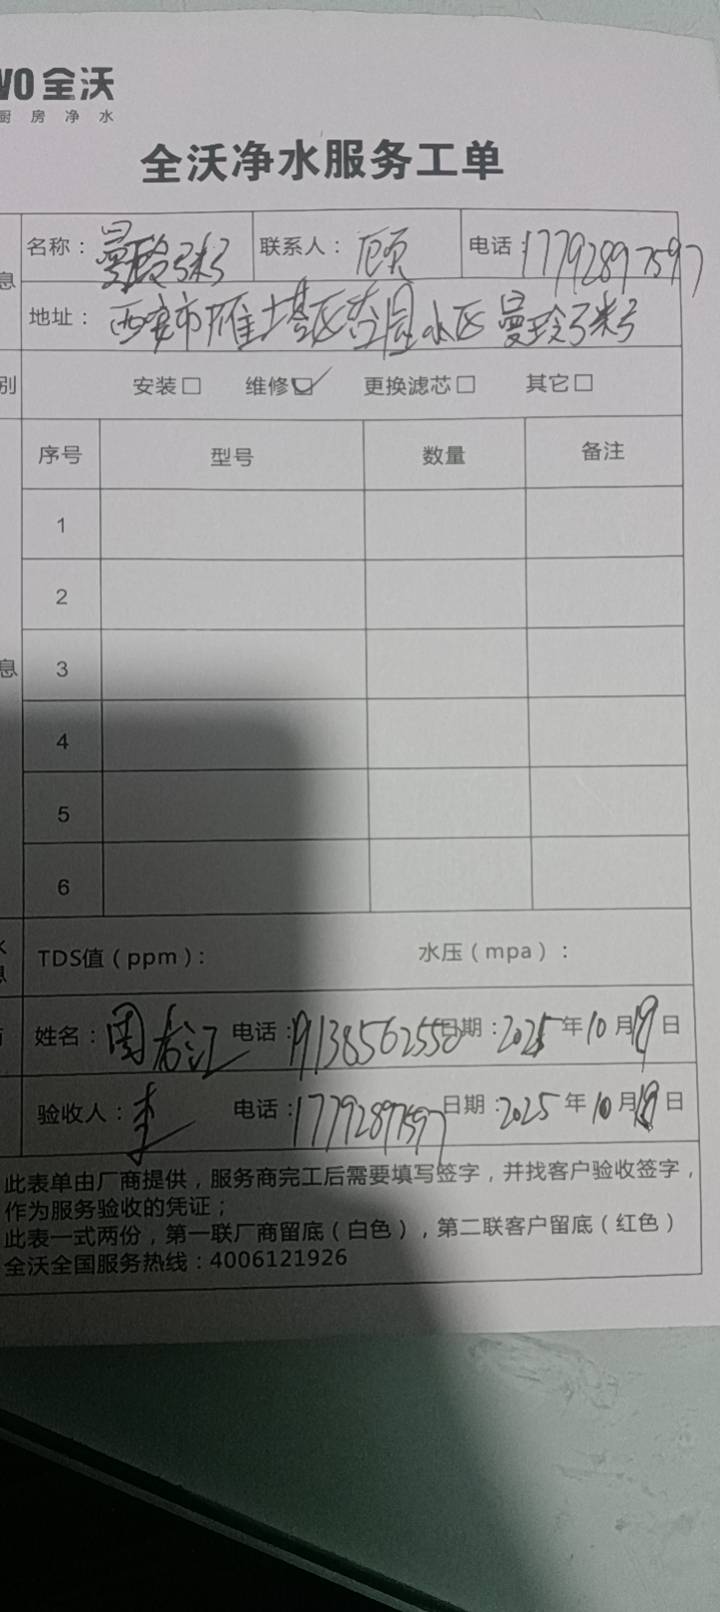 VO 全沃
厨房净水
全沃净水服务工单
息
名称：曼玲粥 联系人：顾 电话：17792897597
地址：西安市雁塔区杏园小区曼玲粥
别 安装□ 维修☑ 更换滤芯□ 其它□
序号 型号 数量 备注
1
2
息 3
4
5
6
TDS值（ppm）： 水压（mpa）：
姓名：周 江 电话：19138562558 日期：2025年10月19日
验收人：李 电话：17792897597 日期：2025年10月19日
此表单由厂商提供，服务商完工后需要填写签字，并找客户验收签字，
作为服务验收的凭证；
此表一式两份，第一联厂商留底（白色），第二联客户留底（红色）
全沃全国服务热线：4006121926